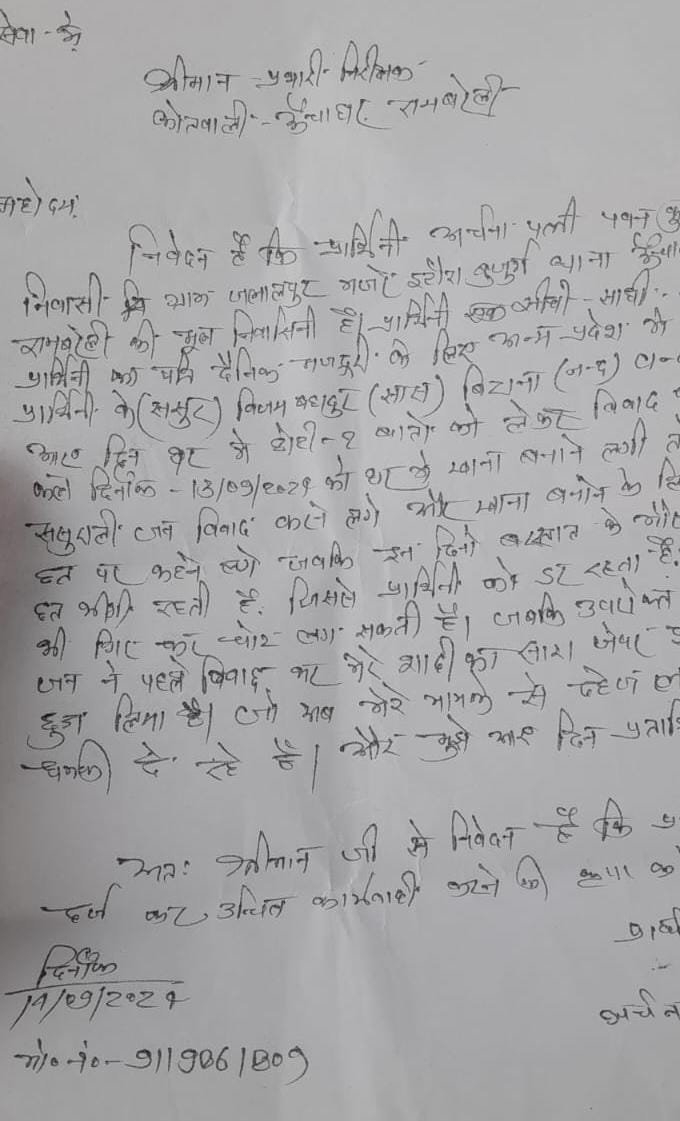 सेवा - में
श्रीमान - प्रभारी - निरीक्षक
कोतवाली - ऊँचाहार, रायबरेली
महोदय,
निवेदन है कि प्रार्थिनी अर्चना पत्नी पवन
निवासी ग्राम जलालपुर मजरे इटौरा बुजुर्ग थाना
रायबरेली की मूल निवासिनी है। प्रार्थिनी एक सीधी - साधी
प्रार्थिनी का पति दैनिक मजदूरी के लिए अन्य प्रदेश में
प्रार्थिनी के (ससुर) विजय बहादुर (सास) बिटाना (नन्द)
आए दिन घर में छोटी - २ बातों को लेकर विवाद
करते दिनाँक - 13/09/2024 को घर में खाना बनाने लगी
ससुराली जन विवाद करने लगे और खाना बनाने के
छत पर कहने लगे जबकि इन दिनों बरसात के
छत भीगी रहती है. जिससे प्रार्थिनी को डर रहता है.
भी गिर कर चोट लग सकती है। जबकि उपरोक्त
जन ने पहले विवाद कर मेरे शादी का सारा जेवर
छुड़ा लिया है। जो अब मेरे मायके से दहेज
धमकी दे रहे हैं। और मुझे आए दिन
अतः श्रीमान जी से निवेदन है कि
दर्ज कर उचित कार्यवाही करने की कृपा
दिनाँक
14/09/2024
मो० नं० - 9119061809